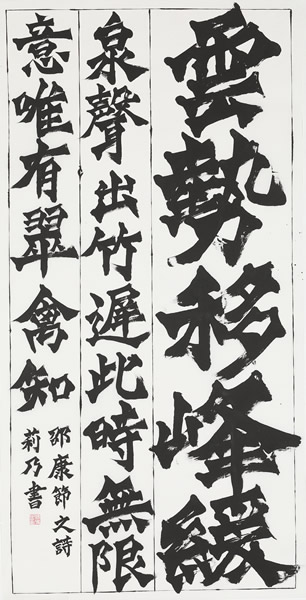 雲勢移峰緩
泉聲出竹遲此時無限
意唯有翠禽知
邵康節之詩
莉乃書